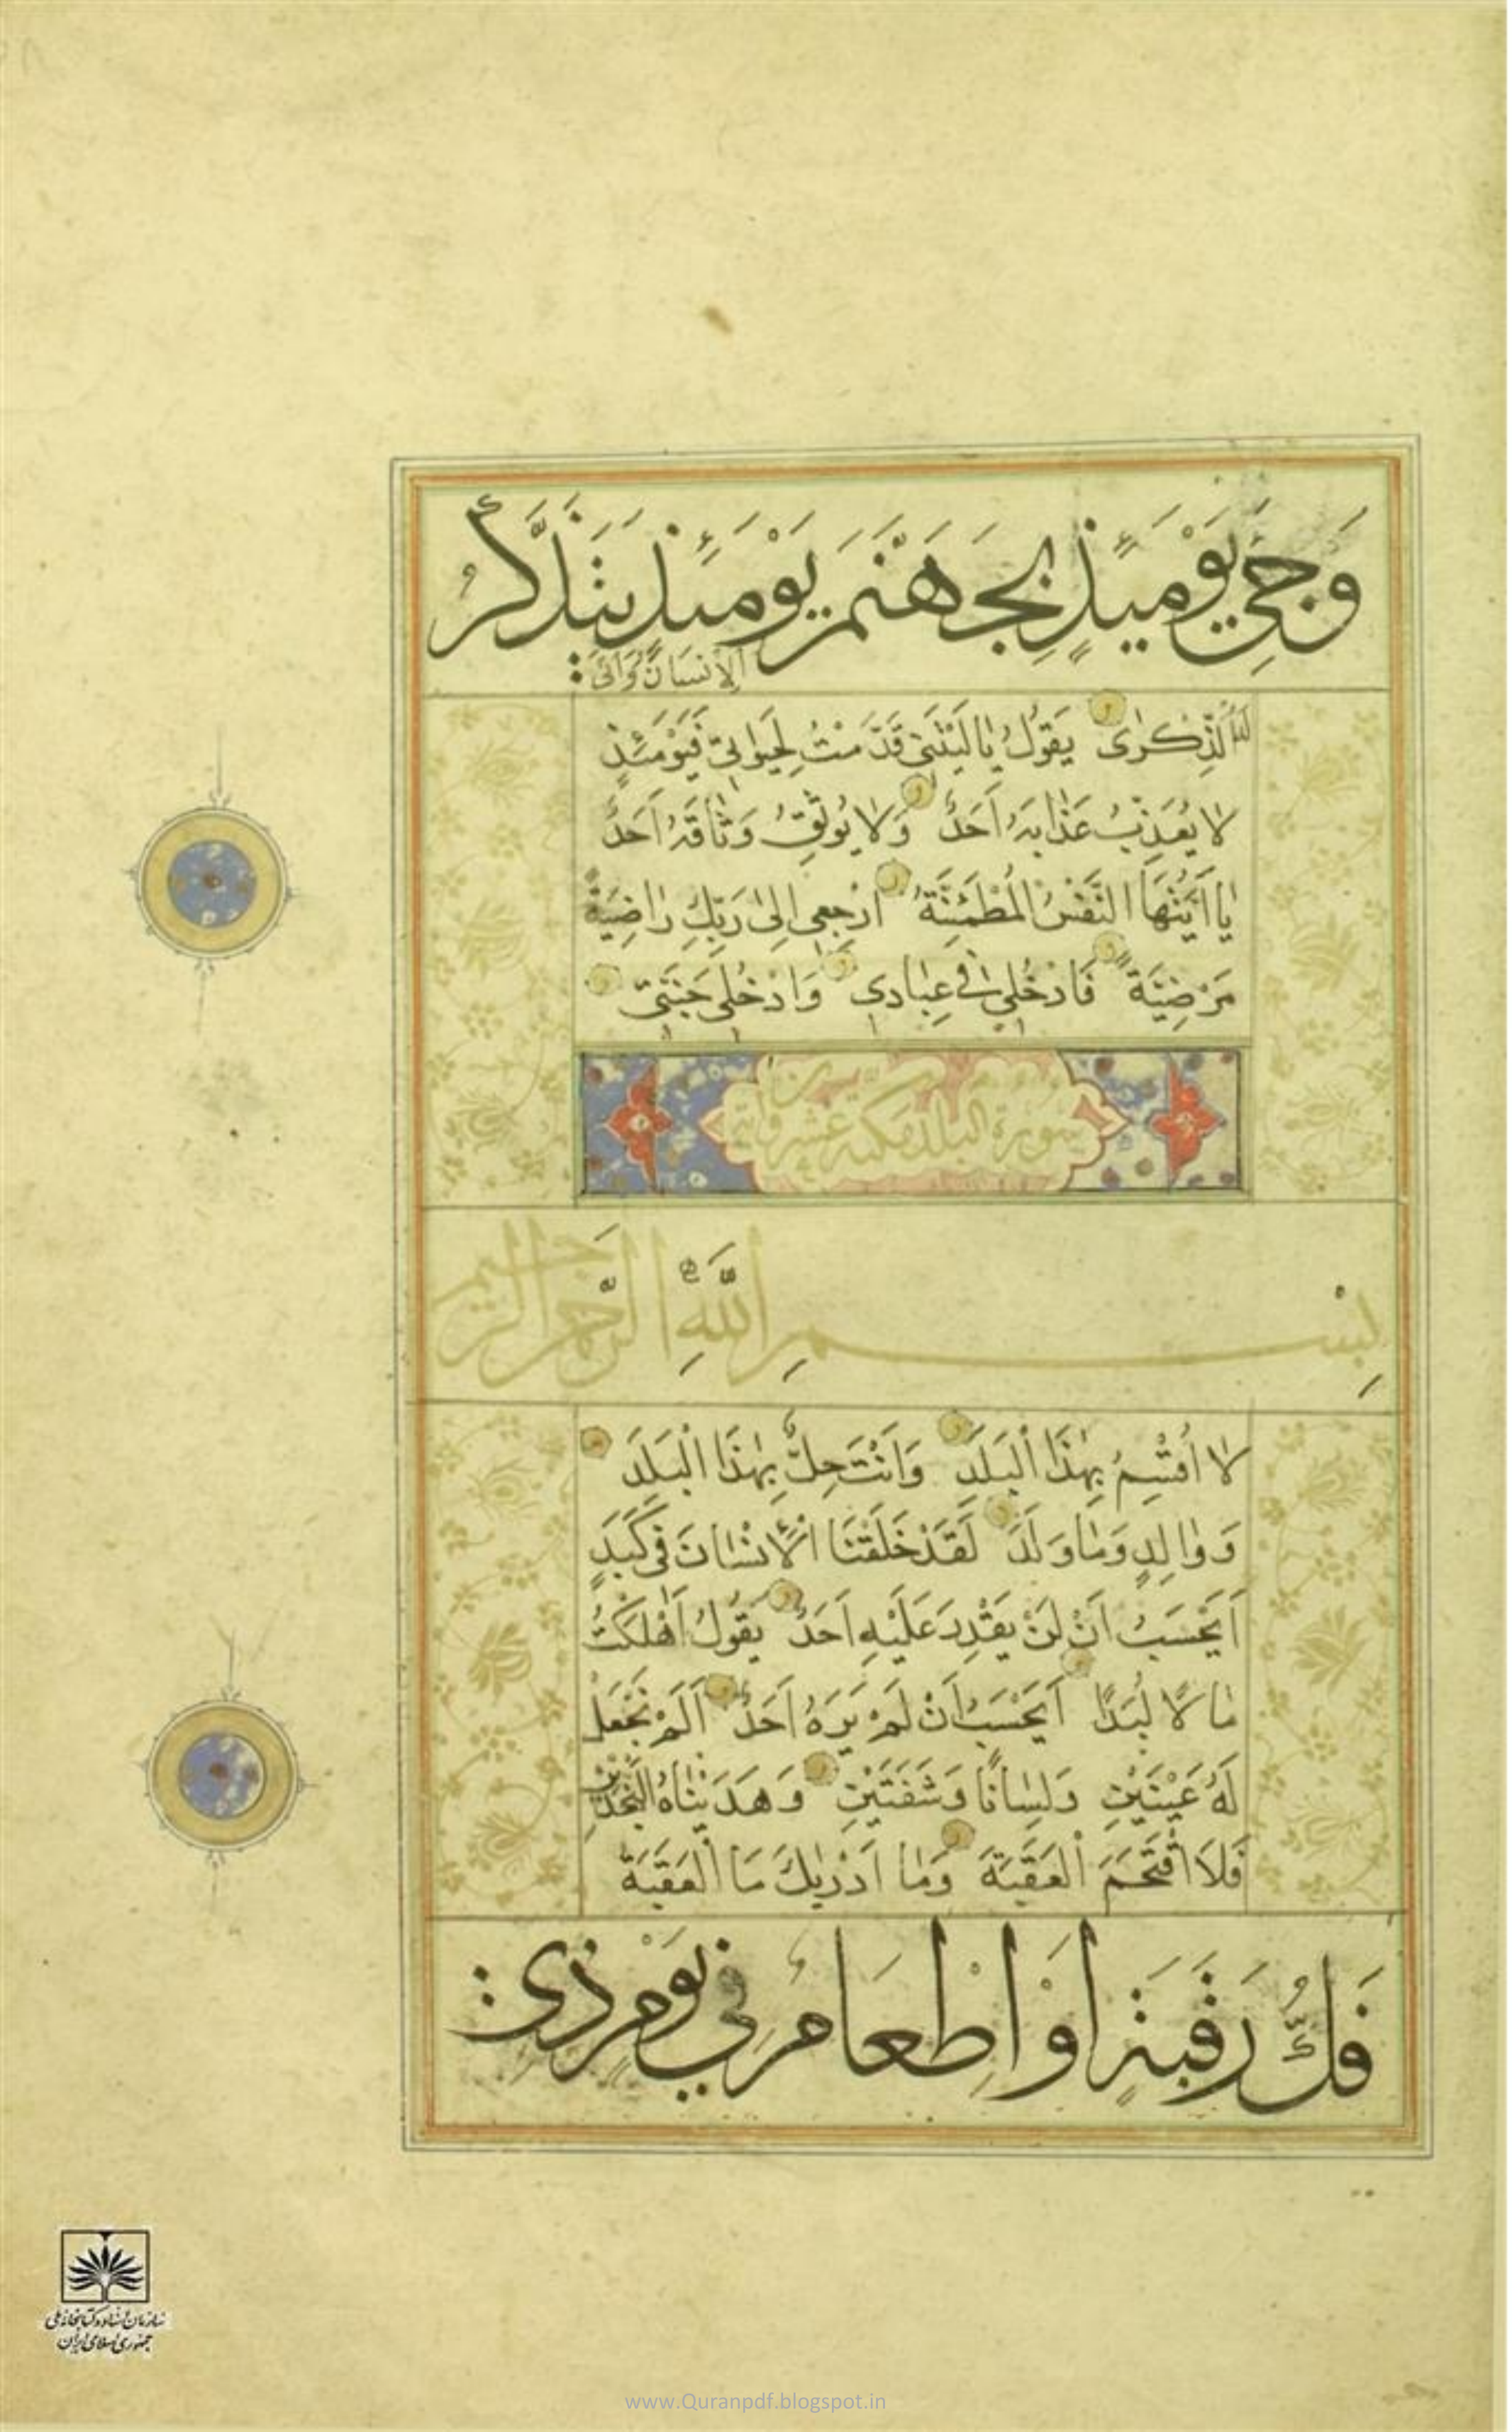 وَجِيَ يَوْمَئِذٍ بِجَهَنَّمَ يَوْمَئِذٍ يَتَذَكَّرُ
الْاِنْسَانُ وَاَنّٰى
لَهُ الذِّكْرٰى يَقُولُ يَا لَيْتَنِي قَدَّمْتُ لِحَيٰوتِي فَيَوْمَئِذٍ
لَا يُعَذِّبُ عَذَابَهُ اَحَدٌ وَلَا يُوثِقُ وَثَاقَهُ اَحَدٌ
يَا اَيَّتُهَا النَّفْسُ الْمُطْمَئِنَّةُ ارْجِعِي اِلٰى رَبِّكِ رَاضِيَةً
مَرْضِيَّةً فَادْخُلِي فِي عِبَادِي وَادْخُلِي جَنَّتِي
سورة البلد مكية عشرون اية
بِسْمِ اللّٰهِ الرَّحْمٰنِ الرَّحِيمِ
لَا اُقْسِمُ بِهٰذَا الْبَلَدِ وَاَنْتَ حِلٌّ بِهٰذَا الْبَلَدِ
وَوَالِدٍ وَمَا وَلَدَ لَقَدْ خَلَقْنَا الْاِنْسَانَ فِي كَبَدٍ
اَيَحْسَبُ اَنْ لَنْ يَقْدِرَ عَلَيْهِ اَحَدٌ يَقُولُ اَهْلَكْتُ
مَالًا لُبَدًا اَيَحْسَبُ اَنْ لَمْ يَرَهُ اَحَدٌ اَلَمْ نَجْعَلْ
لَهُ عَيْنَيْنِ وَلِسَانًا وَشَفَتَيْنِ وَهَدَيْنَاهُ النَّجْدَيْنِ
فَلَا اقْتَحَمَ الْعَقَبَةَ وَمَا اَدْرٰيكَ مَا الْعَقَبَةُ
فَكُّ رَقَبَةٍ اَوْ اِطْعَامٌ فِي يَوْمٍ ذِي
سازمان اسناد و کتابخانه ملی
جمهوری اسلامی ایران
www.Quranpdf.blogspot.in